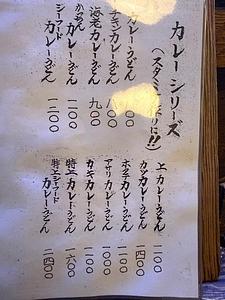 カレーシリーズ
(スタミ
りに!!)
カレーうどん
チキンカレーうどん 八〇〇
海老カレーうどん 九〇〇
カレーうどん 一一〇〇
シーフードカレーうどん 一二〇〇
上カレーうどん 一一〇〇
カツカレーうどん 一四〇〇
ホタテカレーうどん 一一〇〇
アサリカレーうどん 一〇〇〇
カキカレーうどん 一一〇〇
特上カレーうどん 一六〇〇
特上シーフードカレーうどん 二四〇〇